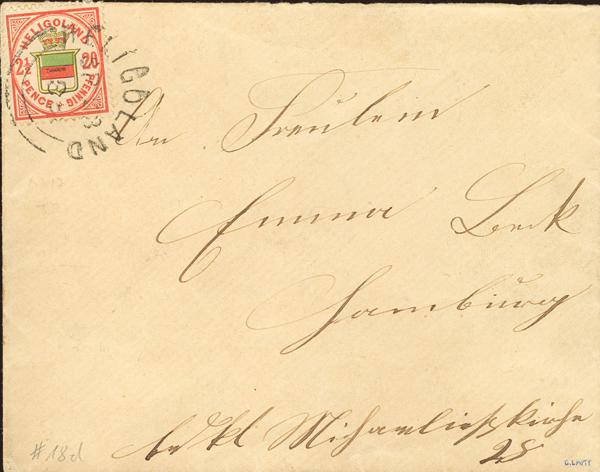 HELIGOLAND
2½ 20
PENCE PFENNIG
HELIGOLAND
An Fräulein
Emma Beck
Hamburg
Michaeliskirche
25
#18d